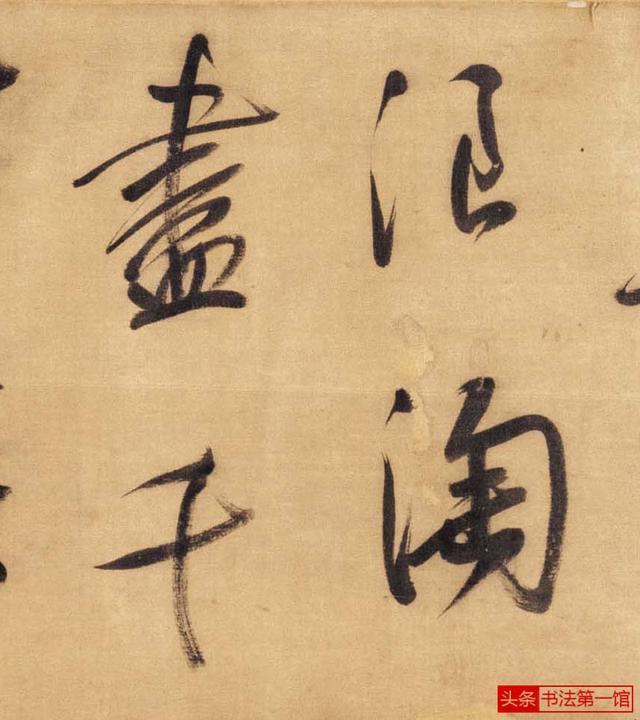 浪淘
盡千
头条 书法第一馆